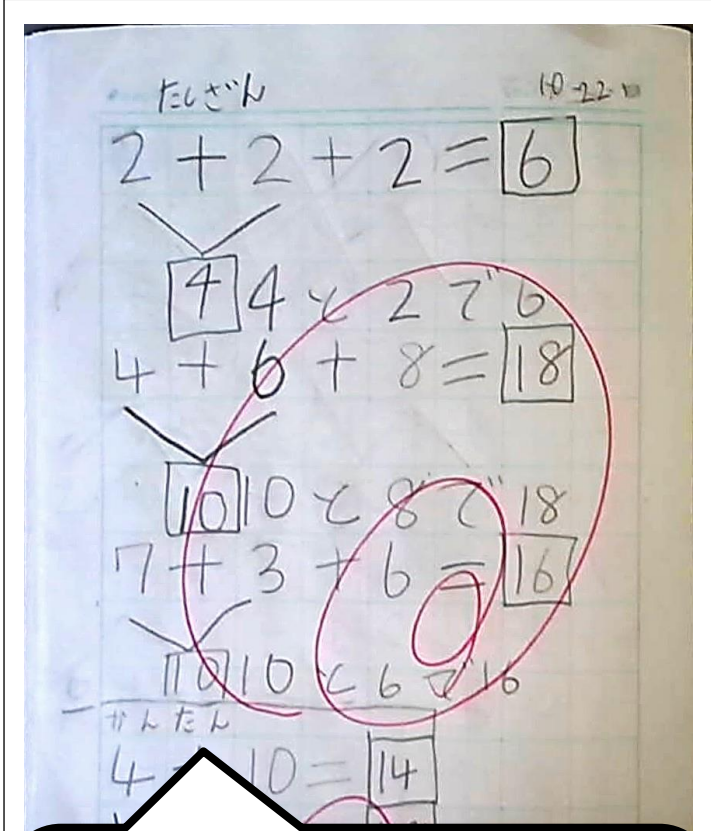 たしざん 10-22
2+2+2=6
4 4と2で6
4+6+8=18
10 10と8で18
7+3+6=16
10 10と6で16
かんたん
4+10=14